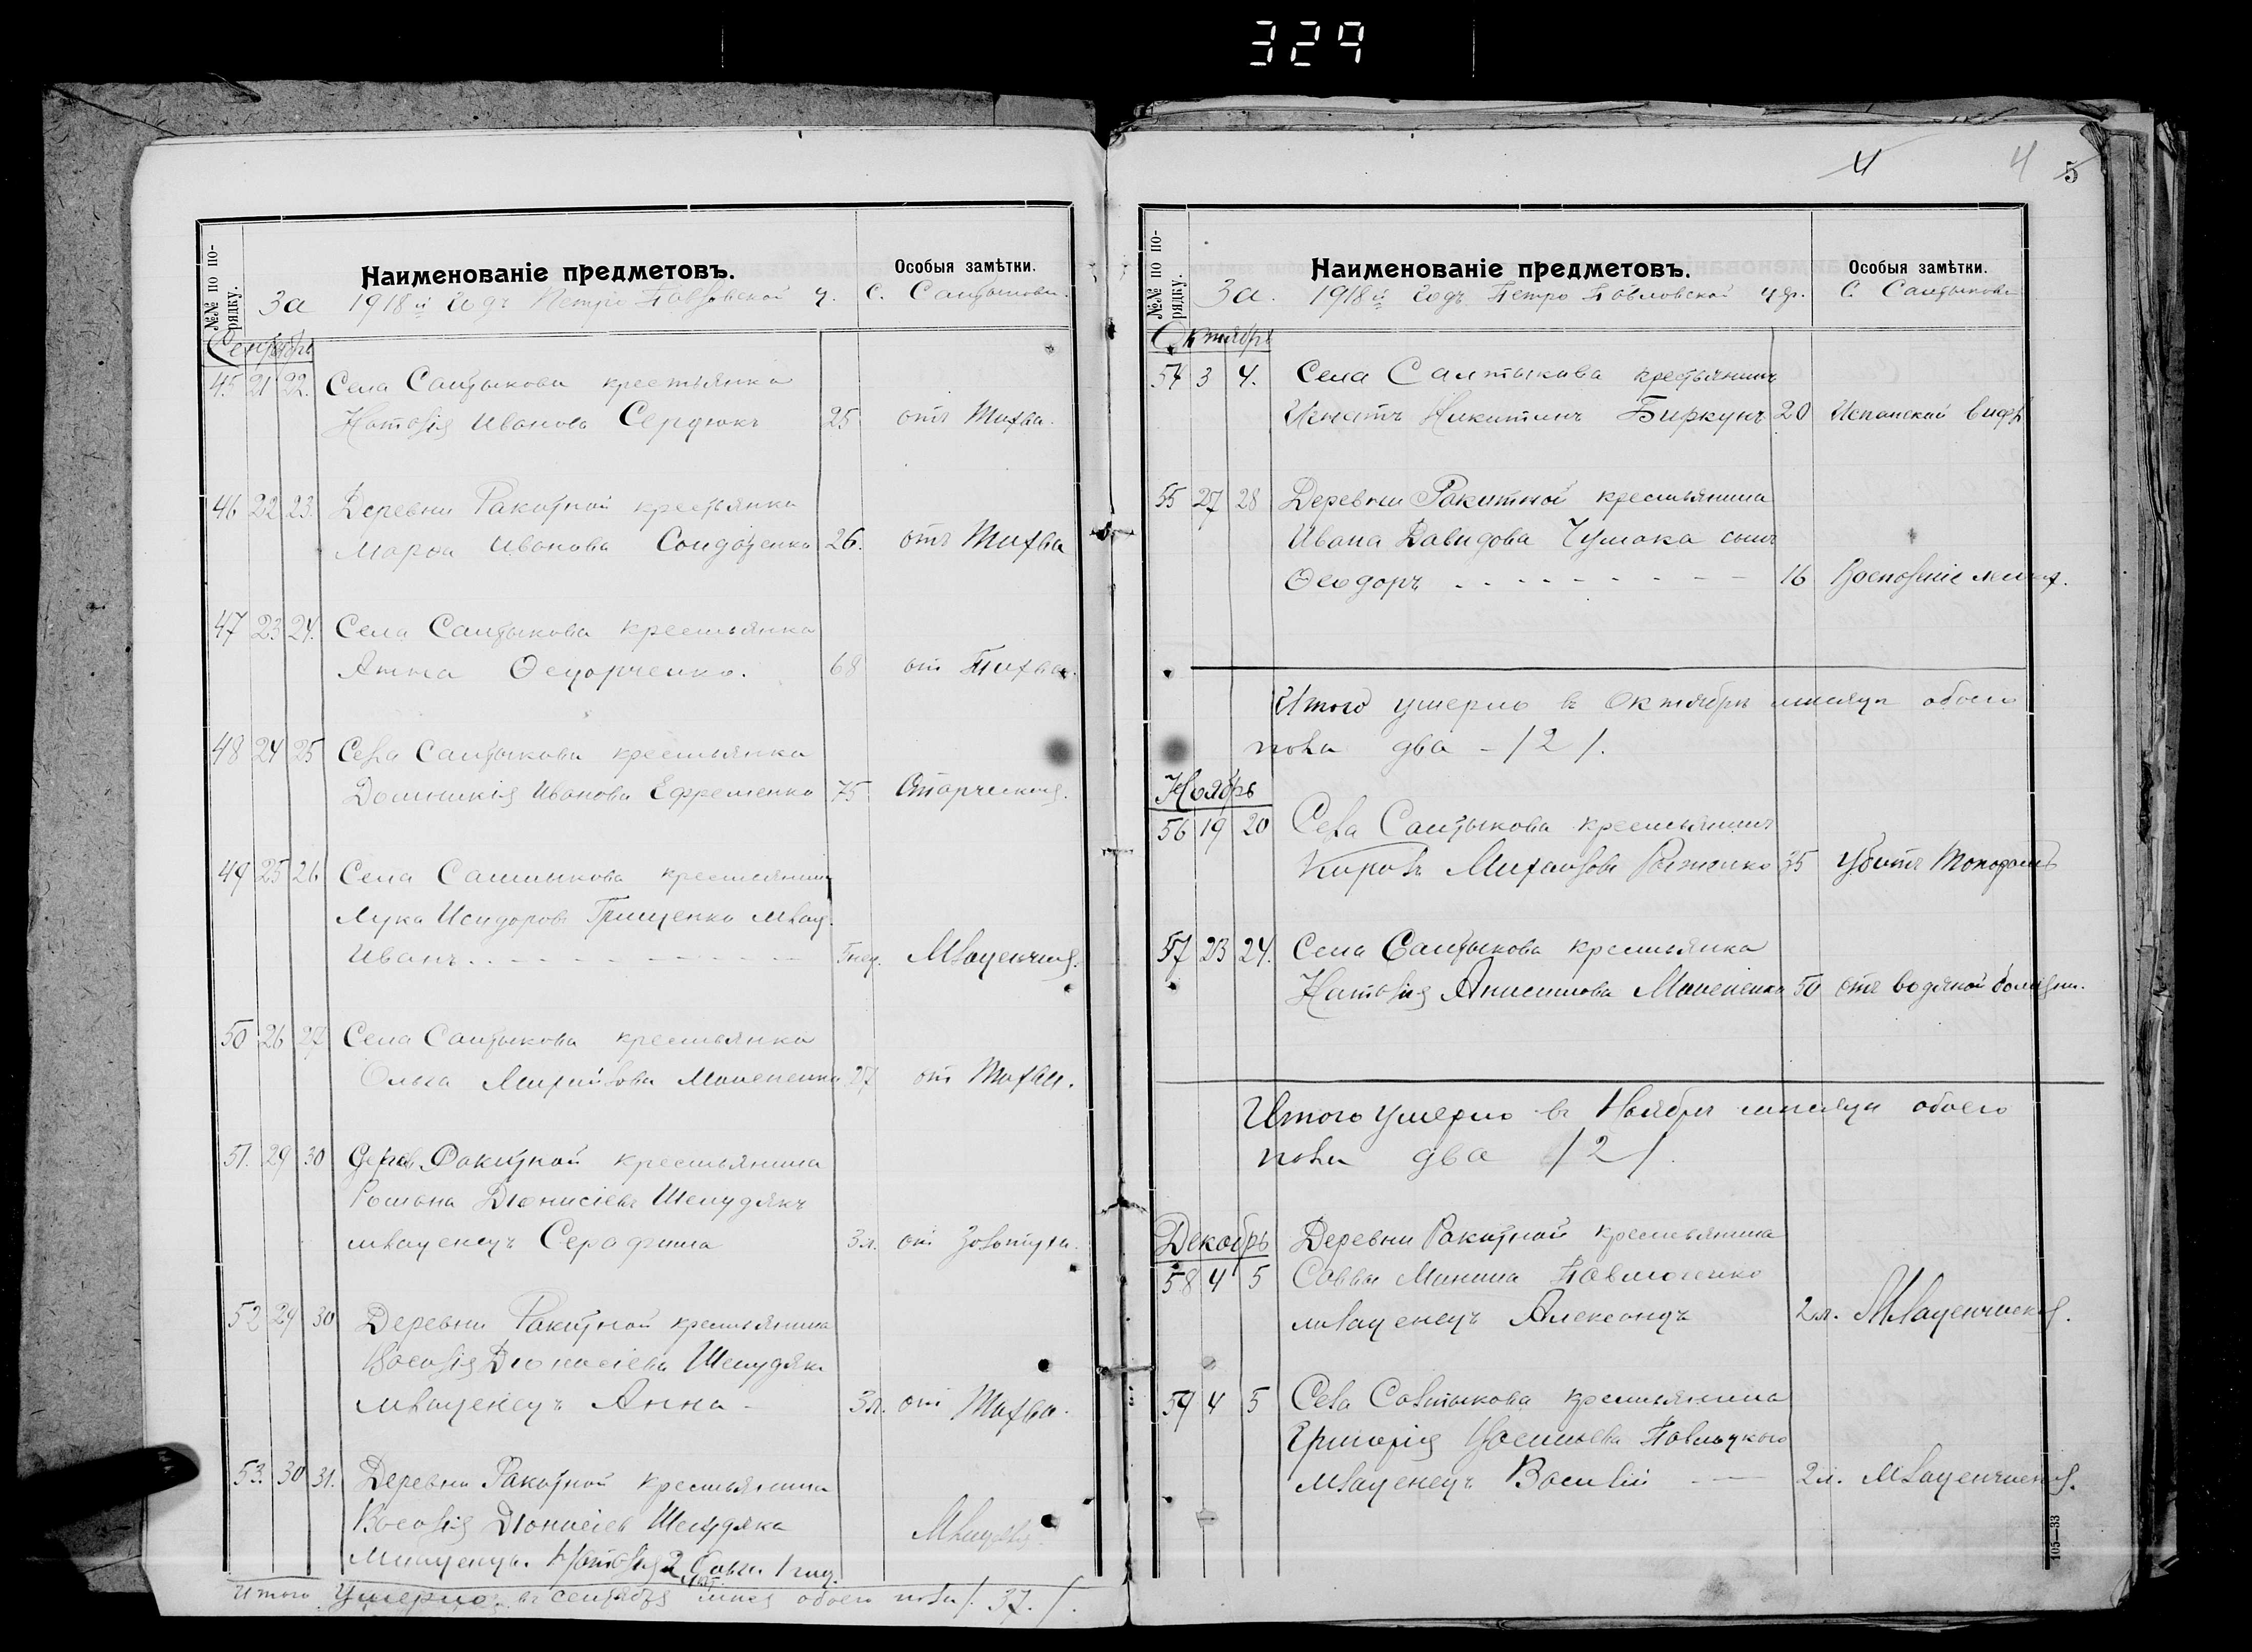 329
№№ по по-
рядку.
Наименованіе предметовъ.
Особыя замѣтки.
За 1918й годъ Петро Павловской ц. С. Салтыкова.
Сентябрь
45 21 22. Села Салтыкова крестьянка
Наталія Иванова Сердюкъ 25 отъ Тифа.
46 22 23. Деревни Ракитной крестьянка
Марфа Иванова 26. отъ Тифа
47 23 24. Села Салтыкова крестьянка
Анна Ѳедорченко. 68 от Тифа.
48 24 25 Села Салтыкова крестьянка
Домникія Иванова Ефременко 75 Старческая.
49 25 26 Села Салтыкова крестьянинъ
Лука Исидоровъ Грищенко млад.
Иванъ 
50 26 27 Села Салтыкова крестьянка
Ольга 27 от Тифа.
51. 29 30 Дерев. Ракитной крестьянина
Романа Діонисіевъ Шелудякъ
младенецъ Серафима 3 л. от Золотухи.
52 29 30 Деревни Ракитной крестьянина
Василія Діонисіева Шелудяка
младенецъ Анна - 3 л. от Тифа.
53. 30 31. Деревни Ракитной крестьянина
Василія Діонисіев Шелудяка
младенцы Наталія 2 1 год.
Итого умерло въ сентября обоего пола /. 37. /.
4 4 5
№№ по по-
рядку.
Наименованіе предметовъ.
Особыя замѣтки.
За 1918й годъ Петро Павловской цр. С. Салтыкова
Октябрь
54 3 4. Села Салтыкова крестьянинъ
Игнатъ Никитинъ Биркунъ 20 Испанкой
55 27 28 Деревни Ракитной крестьянина
Ивана Давидова Чумака сынъ
Ѳеодоръ - - - - - - - - - 16 Воспаленіе легких.
Итого умерло въ Октябрѣ мѣсяцѣ обоего
пола два - /2/.
Ноябрь
56 19 20 Села Салтыкова крестьянинъ
Михайловъ 35 Убитъ
57 23 24. Села Салтыкова крестьянка
Наталія Анисимова 50 отъ водяной болѣзни.
Итого умерло въ Ноябрѣ мѣсяцѣ обоего
пола два /2/.
Декабрь
Деревни Ракитной крестьянина
58 4 5 Саввы Минина Павлюченко
младенецъ Александъ 2 л. Младенческая.
59 4 5 Села Салтыкова крестьянина
Григорія Васильева Павлуцкого
младенецъ Василій - 2 л. Младенческая.
105—33